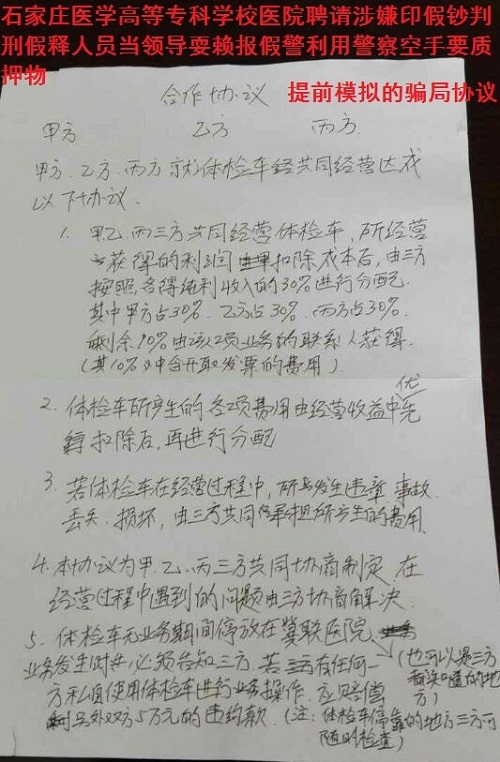 石家庄医学高等专科学校医院聘请涉嫌印假钞判
刑假释人员当领导耍赖报假警利用警察空手要质
押物
提前模拟的骗局协议
合作协议
甲方 乙方 丙方
甲方、乙方、丙方就体检车经共同经营达成
以下协议、
1. 甲乙丙三方共同经营体检车,所经营
获得的利润 扣除成本后,由三方
按照各得纯利收入的30%进行分配.
其中甲方占30%、乙方占30%、丙方占30%.
剩余10%由该项业务的联系人获得.
(其10%中含开取发票的费用)
2. 体检车所产生的各项费用由经营收益中优先
扣除后,再进行分配
3. 若体检车在经营过程中,所发生违章、事故、
丢失、损坏,由三方共同承担所产生的费用.
4. 本协议为甲、乙、丙三方共同协商制定,在
经营过程中遇到的问题由三方协商解决.
5. 体检车无业务期间停放在冀联医院、
(也可以是三方
的地方)
业务发生时必须告知三方.若有任何一
方私自使用体检车进行业务操作,应赔偿
另外双方5万元的违约款.(注:体检车停靠的地方三方可
随时检查)